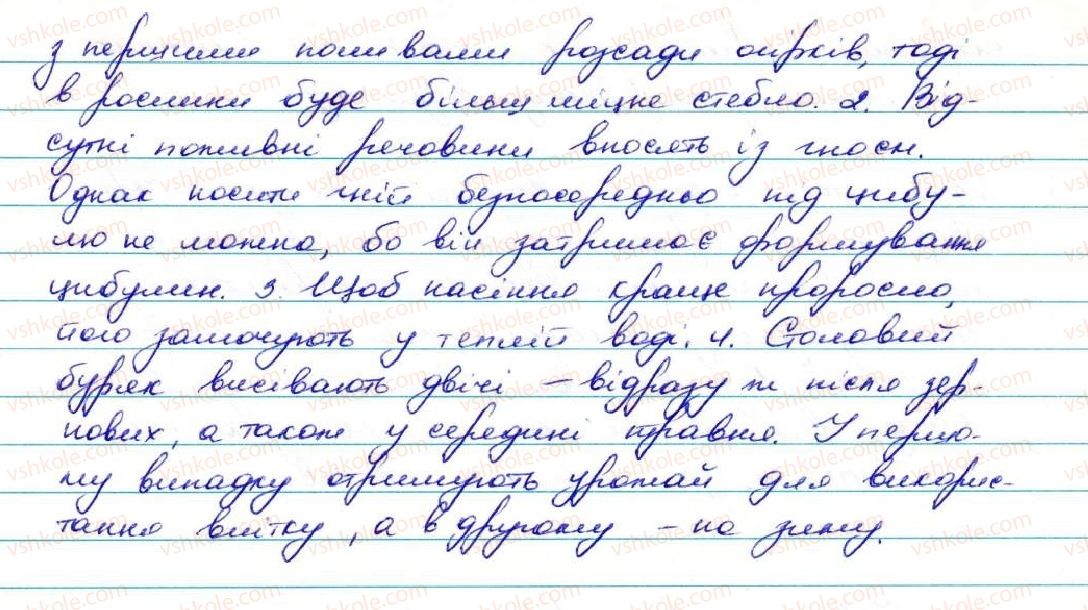 з першими поливами розсади огірків, тоді
в рослини буде більш міцне стебло. 2. Від-
сутні поживні речовини вносять із гноєм.
Однак носити гній безпосередньо під цибу-
лю не можна, бо він затримає формування
цибулин. 3. Щоб насіння краще проросло,
його замочують у теплій воді. 4. Столовий
буряк висівають двічі – відразу ж після зер-
нових, а також у середині травня. У першо-
му випадку отримують урожай для викорис-
тання влітку, а в другому – на зиму.